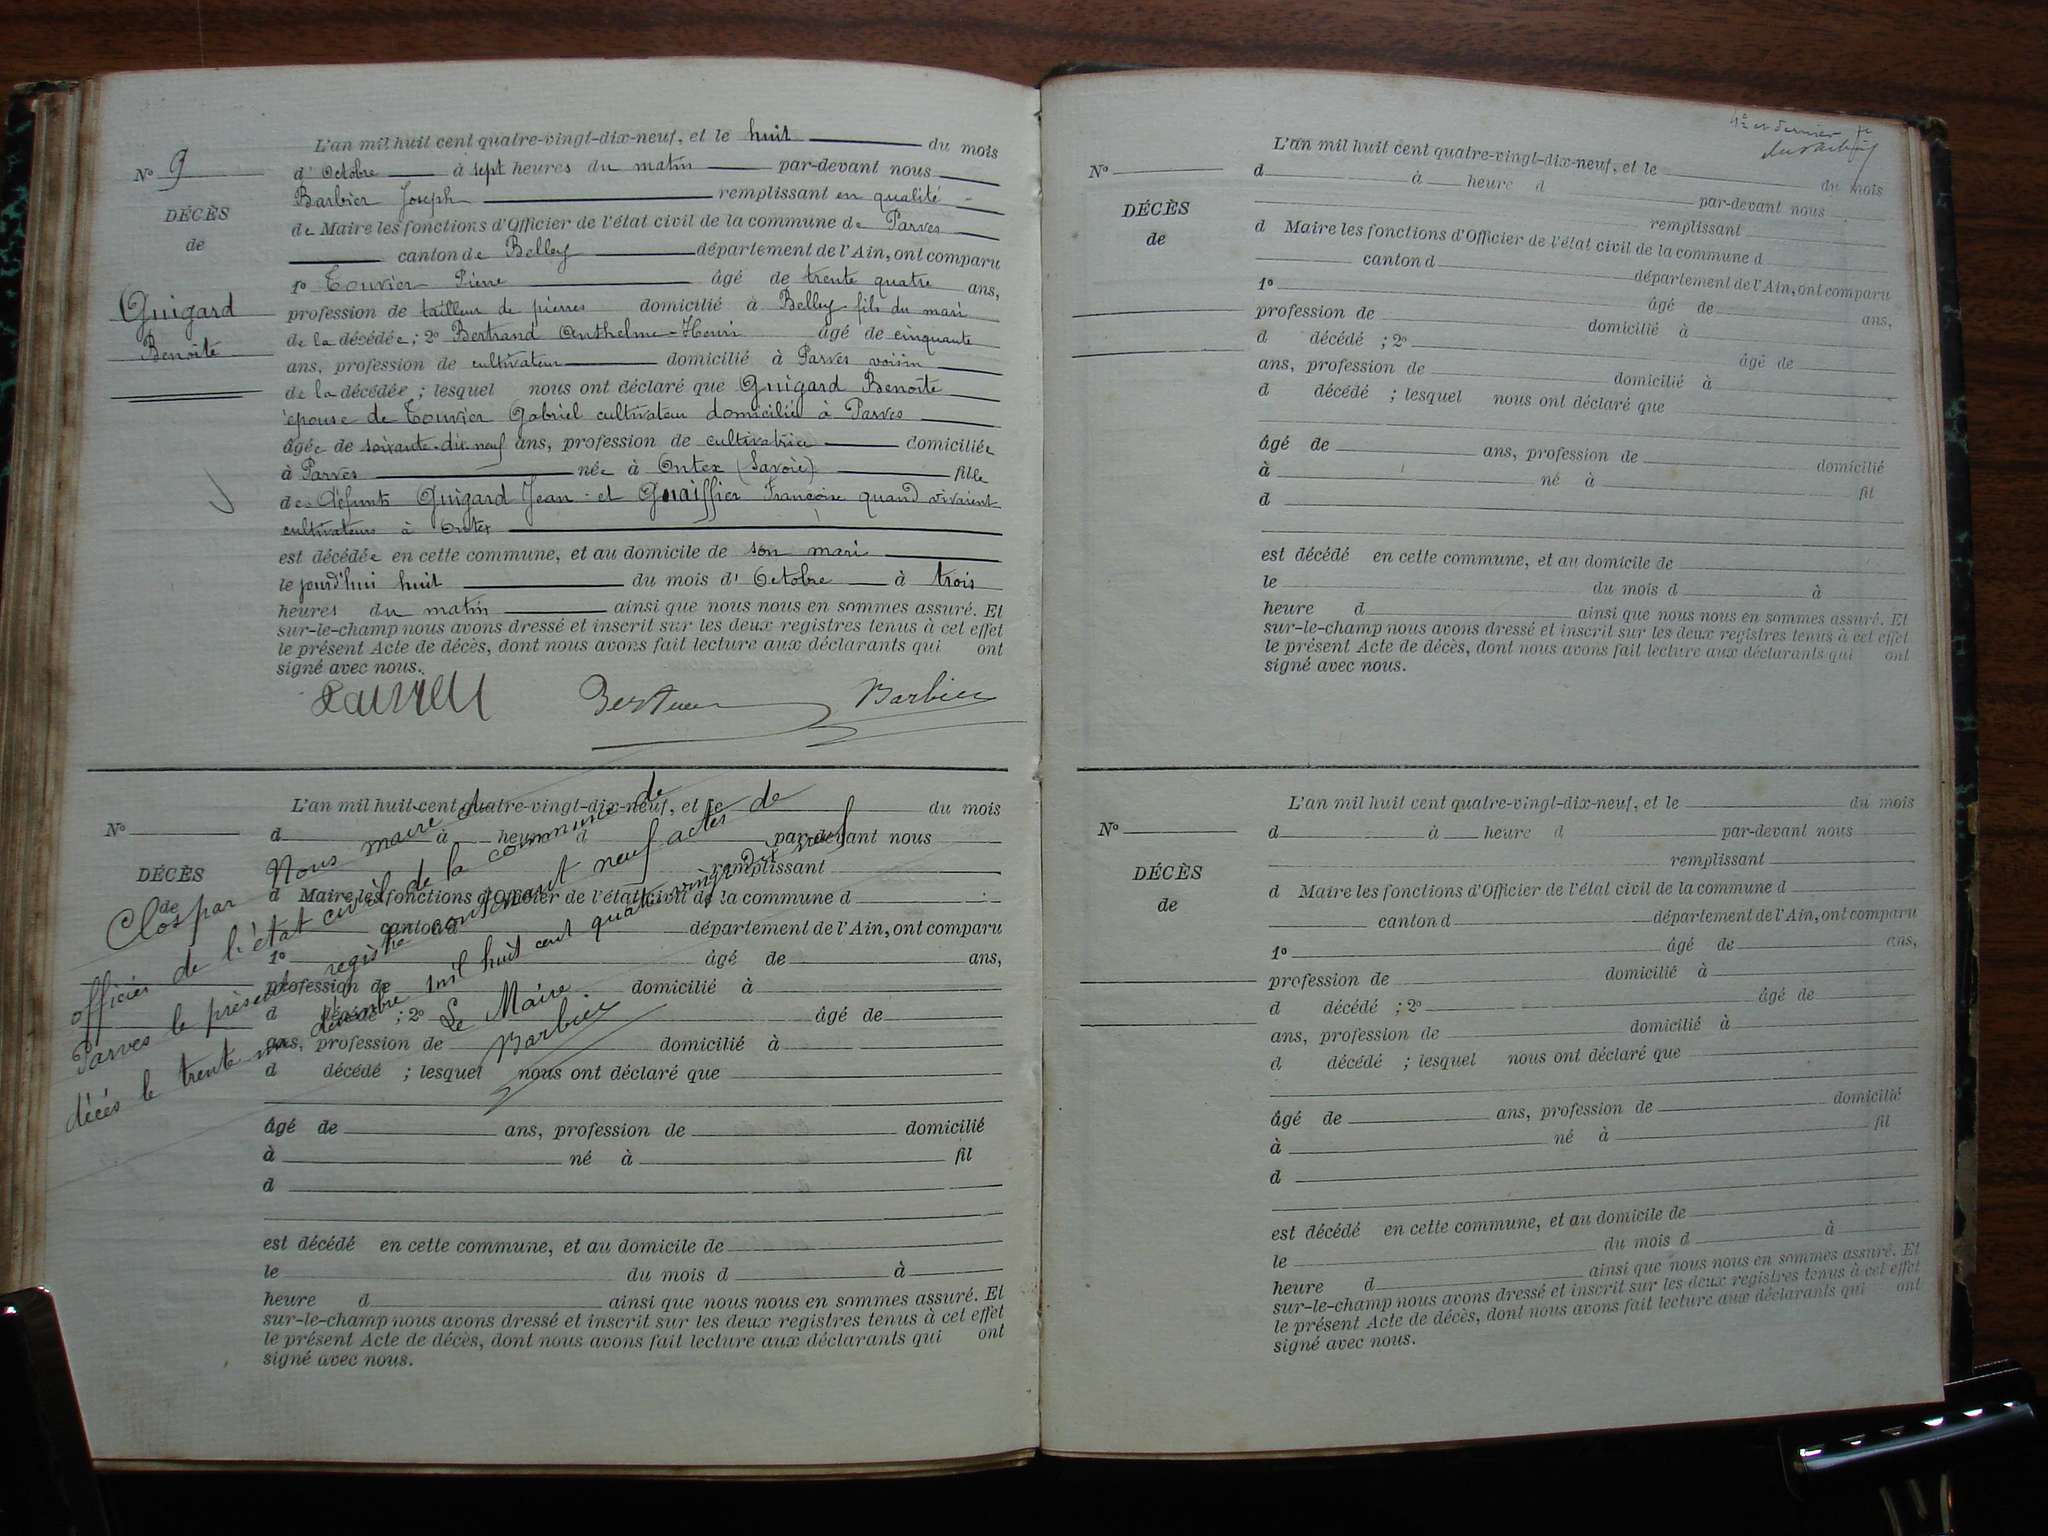 L'an mil huit cent quatre-vingt-dix-neuf, et le huit du mois
No 9
d'Octobre à sept heures du matin par-devant nous
Barbier Joseph remplissant en qualité
DÉCÈS
de Maire les fonctions d'Officier de l'état civil de la commune de Parves
de
canton de Belley département de l'Ain, ont comparu
1o Touvier Pierre âgé de trente quatre ans,
Guigard
profession de tailleur de pierres domicilié à Belley fils du mari
de la décédée; 2o Bertrand Anthelme-Henri âgé de cinquante
Benoîte
ans, profession de cultivateur domicilié à Parves voisin
de la décédée; lesquel nous ont déclaré que Guigard Benoîte
épouse de Touvier Gabriel cultivateur domicilié à Parves
âgée de soixante-dix-neuf ans, profession de cultivatrice domiciliée
à Parves née à Ontex (Savoie) fille
des défunts Guigard Jean et Guaiffier Françoise quand vivaient
cultivateurs à Ontex
est décédée en cette commune, et au domicile de son mari
le jourd'hui huit du mois d'Octobre à trois
heures du matin ainsi que nous nous en sommes assuré. Et
sur-le-champ nous avons dressé et inscrit sur les deux registres tenus à cet effet
le présent Acte de décès, dont nous avons fait lecture aux déclarants qui ont
signé avec nous.
Bertrand Barbier
L'an mil huit cent quatre-vingt-dix-neuf, et le du mois
No
d à heure d par-devant nous
remplissant
DÉCÈS
d Maire les fonctions d'Officier de l'état civil de la commune d
de
canton d département de l'Ain, ont comparu
1o âgé de ans,
profession de domicilié à
d décédé ; 2o âgé de
ans, profession de domicilié à
d décédé ; lesquel nous ont déclaré que
âgé de ans, profession de domicilié
à né à fil
d
est décédé en cette commune, et au domicile de
le du mois d à
heure d ainsi que nous nous en sommes assuré. Et
sur-le-champ nous avons dressé et inscrit sur les deux registres tenus à cet effet
le présent Acte de décès, dont nous avons fait lecture aux déclarants qui ont
signé avec nous.
Clos par Nous maire de
officier de l'état civil de la commune de
Parves le présent registre contenant neuf actes de
décès le trente un décembre mil huit cent quatre vingt dix neuf
Le Maire
Barbier
4e et dernier
L'an mil huit cent quatre-vingt-dix-neuf, et le du mois
No
d à heure d par-devant nous
remplissant
DÉCÈS
d Maire les fonctions d'Officier de l'état civil de la commune d
de
canton d département de l'Ain, ont comparu
1o âgé de ans,
profession de domicilié à
d décédé ; 2o âgé de
ans, profession de domicilié à
d décédé ; lesquel nous ont déclaré que
âgé de ans, profession de domicilié
à né à fil
d
est décédé en cette commune, et au domicile de
le du mois d à
heure d ainsi que nous nous en sommes assuré. Et
sur-le-champ nous avons dressé et inscrit sur les deux registres tenus à cet effet
le présent Acte de décès, dont nous avons fait lecture aux déclarants qui ont
signé avec nous.
L'an mil huit cent quatre-vingt-dix-neuf, et le du mois
No
d à heure d par-devant nous
remplissant
DÉCÈS
d Maire les fonctions d'Officier de l'état civil de la commune d
de
canton d département de l'Ain, ont comparu
1o âgé de ans,
profession de domicilié à
d décédé ; 2o âgé de
ans, profession de domicilié à
d décédé ; lesquel nous ont déclaré que
âgé de ans, profession de domicilié
à né à fil
d
est décédé en cette commune, et au domicile de
le du mois d à
heure d ainsi que nous nous en sommes assuré. Et
sur-le-champ nous avons dressé et inscrit sur les deux registres tenus à cet effet
le présent Acte de décès, dont nous avons fait lecture aux déclarants qui ont
signé avec nous.